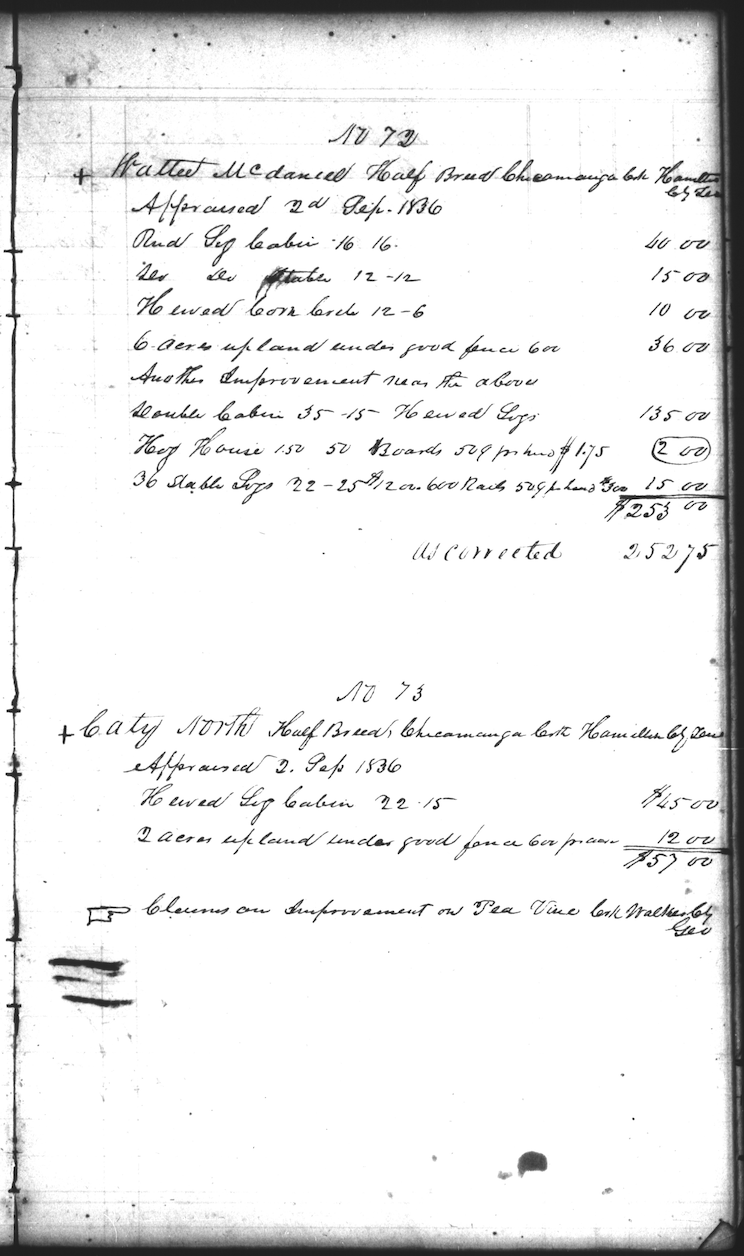 No 72
+ Watter McDaniel Half Breed Chicamauga Crk Hamilton
Cty Ten
Appraised 2d Sep. 1836
Rnd Log Cabin 16 16. 40 00
Do Do Stable 12-12 15 00
Hewed Corn Crib 12-6 10 00
6 acres upland under good fence 600 36 00
Another Improvement near the above
Double Cabin 35-15 Hewed Logs 135 00
Hog House 150 50 Boards 50¢ pr hund $1.75 2 00
36 Stable Logs 22-25 $12 00. 600 Rails 50¢ pr hund $3 00 15 00
$253 00
As corrected 252 75
No 73
+ Caty North Half Breed, Chicamauga Crk Hamilton Cty Tenn
Appraised 2. Sep 1836
Hewed Log Cabin 22-15 $45 00
2 acres upland under good fence 600 pr acre 12 00
$57 00
☞ Claims an Improvement on Pea Vine Crk Walker Cty
Geo